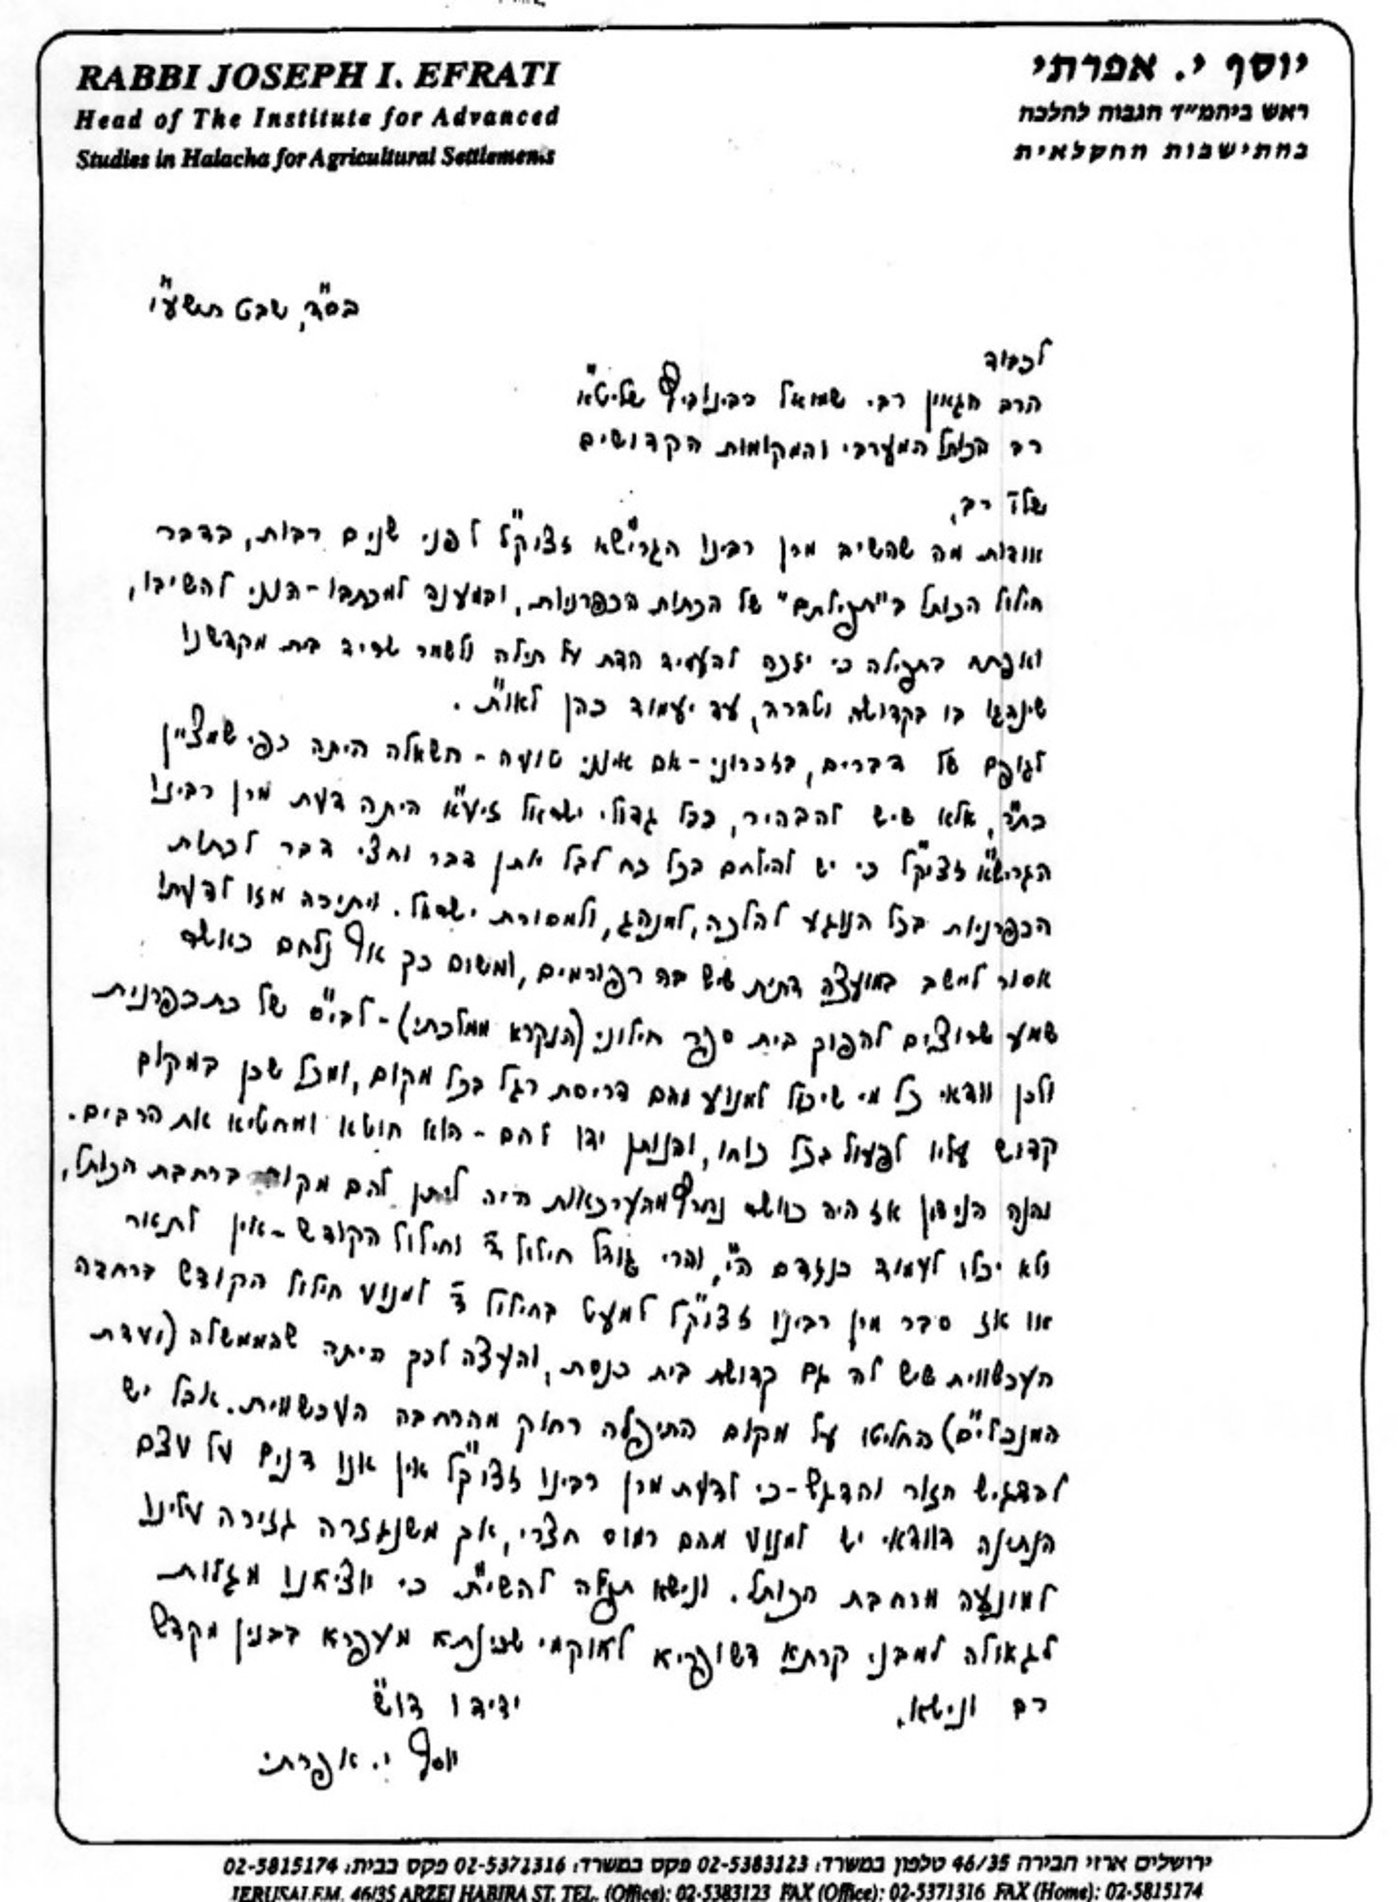 RABBI JOSEPH I. EFRATI
Head of The Institute for Advanced
Studies in Halacha for Agricultural Settlements
יוסף י. אפרתי
ראש ביהמ״ד הגבוה להלכה
בהתישבות החקלאית
בס"ד, שבט תשע"ו
לכבוד
הרב הגאון רבי שמואל רבינוביץ שליט"א
רב הכותל המערבי והמקומות הקדושים
שלו' רב,
אודות מה שהשיב מרן רבינו הגריש"א זצוק"ל לפני שנים רבות, בדבר
חילול הכותל ב"תפילתם" של הכתות הכפרניות, ובמענה למכתבו - הנני להשיבו,
ואפתח בתפילה כי יזכה להעמיד הדת על תילה ולשמר שריד בית מקדשנו
שינהגו בו בקדושה וטהרה, עד יעמוד כהן לאו"ת.
לגופם של דברים, בזכרוני - אם אינני טועה - השאלה היתה כפי שמציין
כת"ר, אלא שיש להבהיר, ככל גדולי ישראל זיע"א היתה דעת מרן רבינו
הגריש"א זצוק"ל כי יש להילחם בכל כח לבל יאתן דבר וחצי דבר לכתות
הכפרניות בכל הנוגע להלכה, למנהג, ולמסורת ישראל. ויתירה מזו לדעתו
אסור לישב במועצה דתית שיש בה רפורמים, ומשום כך אף נלחם כאשר
שמע שרוצים להפוך בית ספר חילוני (הנקרא ממלכתי) - לבי"ס של כת כפרנית
ולכן וודאי כל מי שיכול למנוע מהם דריסת רגל בכל מקום, ומכל שכן במקום
קדוש עליו לפעול בכל כוחו, והנותן ידו להם - הוא חוטא ומחטיא את הרבים.
והנה הנידון אז היה כאשר נחרץ מהערכאות היה ליתן להם מקום ברחבת הכותל,
ולא יכלו לעמוד כנגדם ה"י, והרי גודל חילול ד' וחילול הקודש - אין לתאור
או אז סבר מרן רבינו זצוק"ל למעט בחילול ד' למנוע חילול הקודש ברחבה
העכשווית שיש לה גם קדושת בית כנסת, והעצה לכך היתה שהממשלה (ועדת
המנכלי"ם) החליטו על מקום התיפלה רחוק מהרחבה העכשווית. אבל יש
להדגיש חזור והדגש - כי לדעת מרן רבינו זצוק"ל אין אנו דנים על עצם
הנתינה דוודאי יש למנוע מהם רמוס חצרי, אך משנגזרה גזירה עלינו
למונעה מרחבת הכותל. ונישא תפלה להשי"ת כי יוציאנו מגלות
לגאולה למבני קרתא דשופריא לאוקמי שכינתא מעפרא בבנין מקדש
רב ונישא.
ידידו דוש"ת
יוסף י. אפרתי
ירושלים ארזי הבירה 46/35 טלפון במשרד: 02-5383123 פקס במשרד: 02-5371316 פקס בבית: 02-5815174
JERUSALEM, 46/35 ARZEI HABIRA ST. TEL. (Office): 02-5383123 FAX (Office): 02-5371316 FAX (Home): 02-5815174